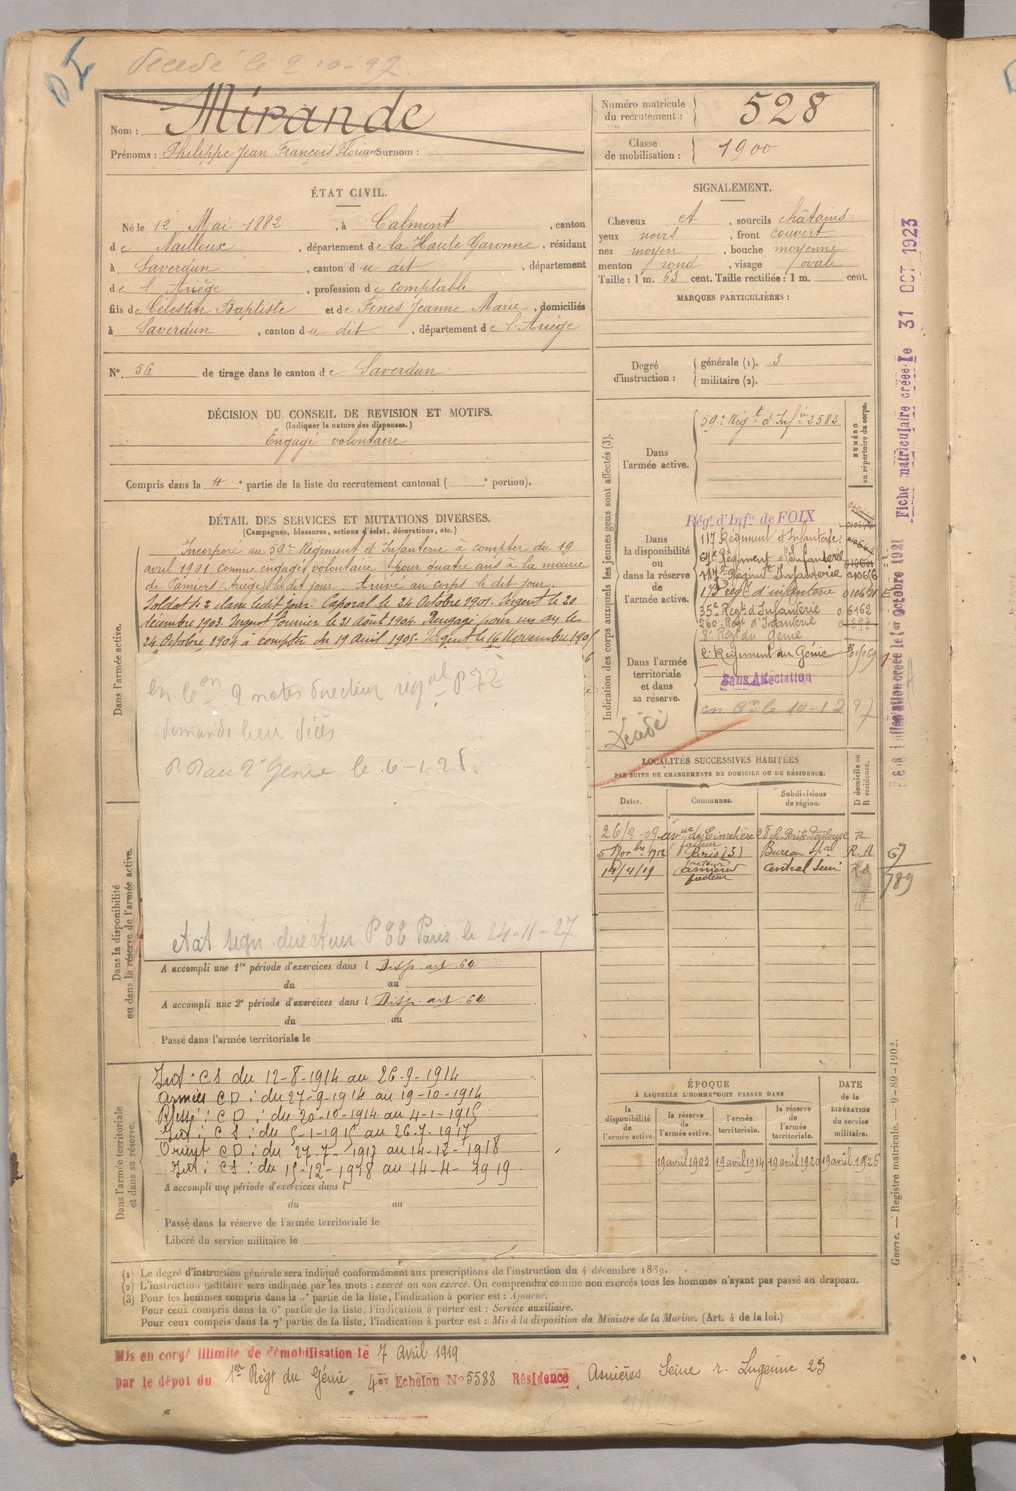 décédé le 2-10-27
Nom : Mirande
Prénoms : Philippe Jean François Florian Surnom :
Numéro matricule du recrutement : 528
Classe de mobilisation : 1900
ÉTAT CIVIL.
Né le 12 Mai 1882, à Calmont, canton
de Nailloux, département de la Haute Garonne, résidant
à Saverdun, canton du dit, département
de l'Ariège, profession de comptable
fils de Célestin Baptiste et de Fines Jeanne Marie, domiciliés
à Saverdun, canton du dit, département de l'Ariège
N° 56 de tirage dans le canton de Saverdun
SIGNALEMENT.
Cheveux et, sourcils châtains
yeux noirs, front couvert
nez moyen, bouche moyenne
menton rond, visage ovale
Taille : 1 m. 63 cent. Taille rectifiée : 1 m. cent.
MARQUES PARTICULIÈRES :
Degré d'instruction : générale (1). 3
militaire (2).
DÉCISION DU CONSEIL DE REVISION ET MOTIFS.
(Indiquer la nature des dispenses.)
Engagé volontaire
Compris dans la 4e partie de la liste du recrutement cantonal ( e portion).
DÉTAIL DES SERVICES ET MUTATIONS DIVERSES.
(Campagnes, blessures, actions d'éclat, décorations, etc.)
Dans l'armée active.
Incorporé au 59e Régiment d'Infanterie à compter du 19
avril 1901 comme engagé volontaire pour quatre ans à la mairie
de Pamiers (Ariège) le dit jour. Arrivé au corps le dit jour.
Soldat de 2e classe ledit jour. Caporal le 24 Octobre 1901. Sergent le 20
décembre 1903. Sergent fourrier le 21 Août 1904. Rengagé pour un an le
24 Octobre 1904 à compter du 19 avril 1905. Sergent le 16 Novembre 190
demande
au 2e Génie le 6-1-2
directeur Paris le 24-11-27
Dans la disponibilité ou dans la réserve de l'armée active.
A accompli une 1re période d'exercices dans l Disp. art 64
du au
A accompli une 2e période d'exercices dans l Disp. art 64
du au
Passé dans l'armée territoriale le
Dans l'armée territoriale et dans sa réserve.
Int : CS du 12-8-1914 au 26-9-1914
Armées CD : du 27-9-1914 au 19-10-1914
Blessé : CD : du 20-10-1914 au 4-1-1915
Int : CS : du 5-1-1915 au 26-7-1917
Orient CD : du 27-7-1917 au 14-12-1918
Int : CS : du 15-12-1918 au 14-4-1919
A accompli une période d'exercices dans l
du au
Passé dans la réserve de l'armée territoriale le
Libéré du service militaire le
Indication des corps auxquels les jeunes gens sont affectés (3).
NUMÉRO au répertoire du corps.
Dans l'armée active.
59e Régt d'Infie 2583
Dans la disponibilité ou dans la réserve de l'armée active.
Régt. d'Infie de FOIX
117 Régiment d'Infanterie
Régiment d'Infanterie
Régiment Infanterie
173e Régt d'infanterie
35e Régt d'Infanterie
260e Régt d'Infanterie
8e Régt du Génie
Dans l'armée territoriale et dans sa réserve.
Régiment du Génie
Sans Affectation
Décédé
LOCALITÉS SUCCESSIVES HABITÉES
PAR SUITE DE CHANGEMENTS DE DOMICILE OU DE RÉSIDENCE.
Dates. Communes. Subdivisions de région. D domicile ou R résidence.
5 Novbre 1912 Paris (3) R.
14/4/19 Asnières Central Seine R
facteur
67
789
ÉPOQUE
À LAQUELLE L'HOMME DOIT PASSER DANS
la disponibilité de l'armée active. la réserve de l'armée active. l'armée territoriale. la réserve de l'armée territoriale.
DATE de la LIBÉRATION du service militaire.
19 avril 1905 19 avril 1914 19 avril 1920 19 avril 1926
Fiche matriculaire créée le 31 OCT 1923
Guerre. — Registre matricule. — 9-89-1902.
(1) Le degré d'instruction générale sera indiqué conformément aux prescriptions de l'instruction du 4 décembre 1889.
(2) L'instruction militaire sera indiquée par les mots : exercé ou non exercé. On comprendra comme non exercés tous les hommes n'ayant pas passé au drapeau.
(3) Pour les hommes compris dans la 5e partie de la liste, l'indication à porter est : Ajourné.
Pour ceux compris dans la 6e partie de la liste, l'indication à porter est : Service auxiliaire.
Pour ceux compris dans la 7e partie de la liste, l'indication à porter est : Mis à la disposition du Ministre de la Marine. (Art. 4 de la loi.)
Mis en congé illimité de démobilisation le 7 Avril 1919
par le dépôt du 1er Régt du Génie 4er Échelon N° 5588 Résidence Asnières Seine r. 23